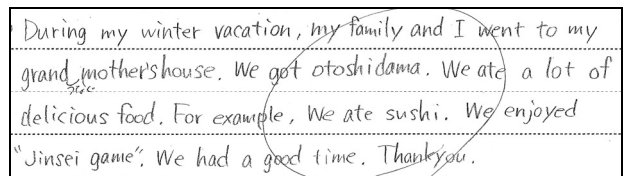 During my winter vacation, my family and I went to my
grand mother's house. We got otoshidama. We ate a lot of
delicious food. For example, We ate sushi. We enjoyed
"Jinsei game". We had a good time. Thankyou.